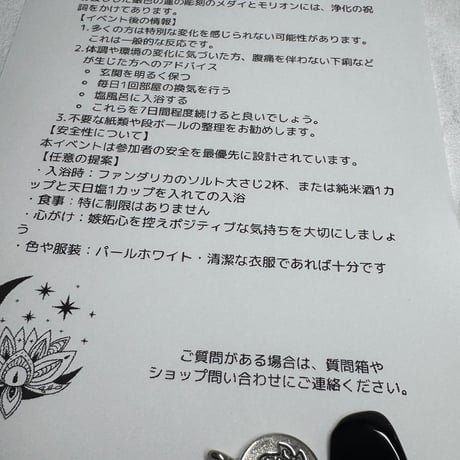 銀色の蓮の彫刻のメダイとモリオンには、浄化の祝
詞をかけてあります。
【イベント後の情報】
1.多くの方は特別な変化を感じられない可能性があります。
これは一般的な反応です。
2.体調や環境の変化に気づいた方、腹痛を伴わない下痢など
が生じた方へのアドバイス
○ 玄関を明るく保つ
○ 毎日1回部屋の換気を行う
○ 塩風呂に入浴する
○ これらを7日間程度続けると良いでしょう。
3.不要な紙類や段ボールの整理をお勧めします。
【安全性について】
本イベントは参加者の安全を最優先に設計されています。
【任意の提案】
・入浴時：ファンダリカのソルト大さじ2杯、または純米酒1カ
ップと天日塩1カップを入れての入浴
・食事：特に制限はありません
・心がけ：嫉妬心を控えポジティブな気持ちを大切にしましょ
う
・色や服装：パールホワイト・清潔な衣服であれば十分です
ご質問がある場合は、質問箱や
ショップ問い合わせにご連絡ください。